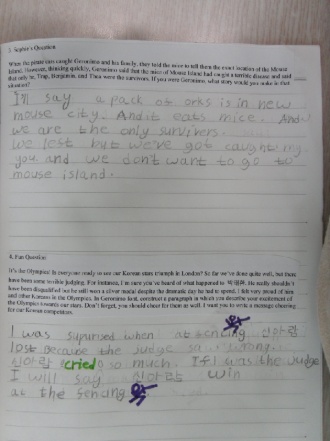 3. Super's Question
When the pirate cats caught Geronimo and his family, they told the mice to tell them the exact location of the Mouse
Island. However, thinking quickly, Geronimo said that the mice of Mouse Island had caught a terrible disease and said
that only he, Trap, Benjamin, and Thea were the survivors. If you were Geronimo, what story would you make in that
situation?
I'll say a pack of orks is in new
mouse city. And it eats mice. And
we are the only survivers.
we left but we've got caught by
you and we don't want to go to
mouse island.
4. Fun Question
It's the Olympics! Is everyone ready to see our Korean stars triumph in London? So far we've done quite well, but there
have been some terrible judging. For instance, I'm sure you've heard of what happened to 박태환. He really shouldn't
have been disqualified but he still won a silver medal despite the dramatic day he had to spend. I felt very proud of him
and other Koreans in the Olympics. In Geronimo field, construct a paragraph in which you describe your excitement of
the Olympics towards our stars. Don't forget, you should cheer for them as well. I want you to write a message cheering
for our Korean competitors.
I was supurued when at fencing 신아람
lost because the judge sa wrong.
신아람 cried so much. If I was the judge
I will say 신아람 win
at the fencing